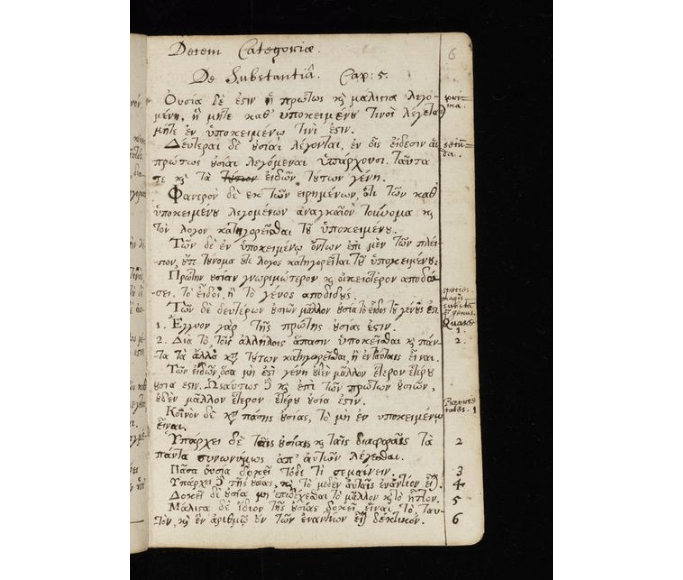 Decem Categoriæ.
6
De Substantiâ. Cap: 5.
Ουσία δέ ἐστιν ἡ πρώτως κ̀ μάλιστα λεγο-
μένη, ἣ μήτε καθ' ὑποκειμένȣ τινὸς λέγεται
μήτε ἐν ὑποκειμένῳ τινί ἐστιν.
Δεύτεραι δὲ ȣσίαι λέγονται, ἐν οἷς εἴδεσιν αἱ
πρώτως ȣσίαι λεγόμεναι ὑπάρχουσι. ταῦτα
τε κ̀ τὰ τῶν εἰδῶν τȣτων γένη.
Φανερὸν δὲ ἐκ τῶν εἰρημένων, ὅτι τῶν καθ'
ὑποκειμένȣ λεγομένων ἀναγκαῖον τοὔνομα κ̀
τὸν λόγον κατηγορεῖσθαι τȣ ὑποκειμένȣ.
Τῶν δὲ ἐν ὑποκειμένῳ ὄντων ἐπὶ μὲν τῶν πλεί-
στων, ȣτε τȣνομα ȣτε λόγος κατηγορεῖται τȣ ὑποκειμένȣ.
Πρώτην ȣσίαν γνωριμώτερον κ̀ οἰκειότερον ἀποδώ-
σει, τὸ εἶδος, ἢ τὸ γένος ἀποδιδȣς.
Τῶν δὲ δευτέρων ȣσιῶν μᾶλλον ȣσία τὸ εἶδος τȣ γένȣς ἐστι.
Quare
1. Ἔγγιον γὰρ τῆς πρώτης ȣσίας ἐστιν.
1.
2. Διὰ τὸ τοῖς ἄλλοις ἅπασιν ὑποκεῖσθαι κ̀ πάν-
2.
τα τὰ ἄλλα κατὰ τȣτων κατηγορεῖσθαι, ἢ ἐν ταύταις εἶναι.
Τῶν εἰδῶν, ὅσα μή ἐστι γένη ȣδὲν μᾶλλον ἕτερον ἑτέρȣ
ȣσία ἐστιν. Ωσαύτως δὲ κ̀ ἐπὶ τῶν πρώτων ȣσιῶν,
ȣδὲν μᾶλλον ἕτερον ἑτέρȣ ȣσία ἐστιν.
Κοινὸν δὲ κατὰ πάσης ȣσίας, τὸ μὴ ἐν ὑποκειμένῳ
1
εἶναι.
Υπάρχει δὲ ταῖς ȣσίαις κ̀ ταῖς διαφοραῖς τὰ
2
πάντα συνωνύμως ἀπ' αὐτῶν λέγεσθαι.
Πᾶσα ȣσία δοκεῖ τόδε τι σημαίνειν.
3
Υπάρχει δὲ τῆς ȣσίας, κ̀ τὸ μηδὲν αὐταῖς ἐναντίον εἶναι.
4
Δοκεῖ δὲ ȣσία μὴ ἐπιδέχεσθαι τὸ μᾶλλον κ̀ τὸ ἧττον.
5
Μάλιστα δὲ ἴδιον τῆς ȣσίας δοκεῖ εἶναι, τὸ ταυ-
τόν, κ̀ ἓν ἀριθμῷ ὂν τῶν ἐναντίων εἶναι δεκτικόν.
6